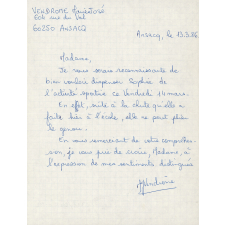 VENDROME MarieJosé
604 rue du Val
60250 ANSACQ
Ansacq, le 13.3.86
Madame,
Je vous serais reconnaissante de
bien vouloir dispenser Sophie de
l'activité sportive ce Vendredi 14 mars.
En effet, suite à la chute qu'elle a
faite hier à l'école, elle ne peut plier
le genou.
En vous remerciant de votre compréhen-
sion, je vous prie de croire, Madame, à
l'expression de mes sentiments distingués